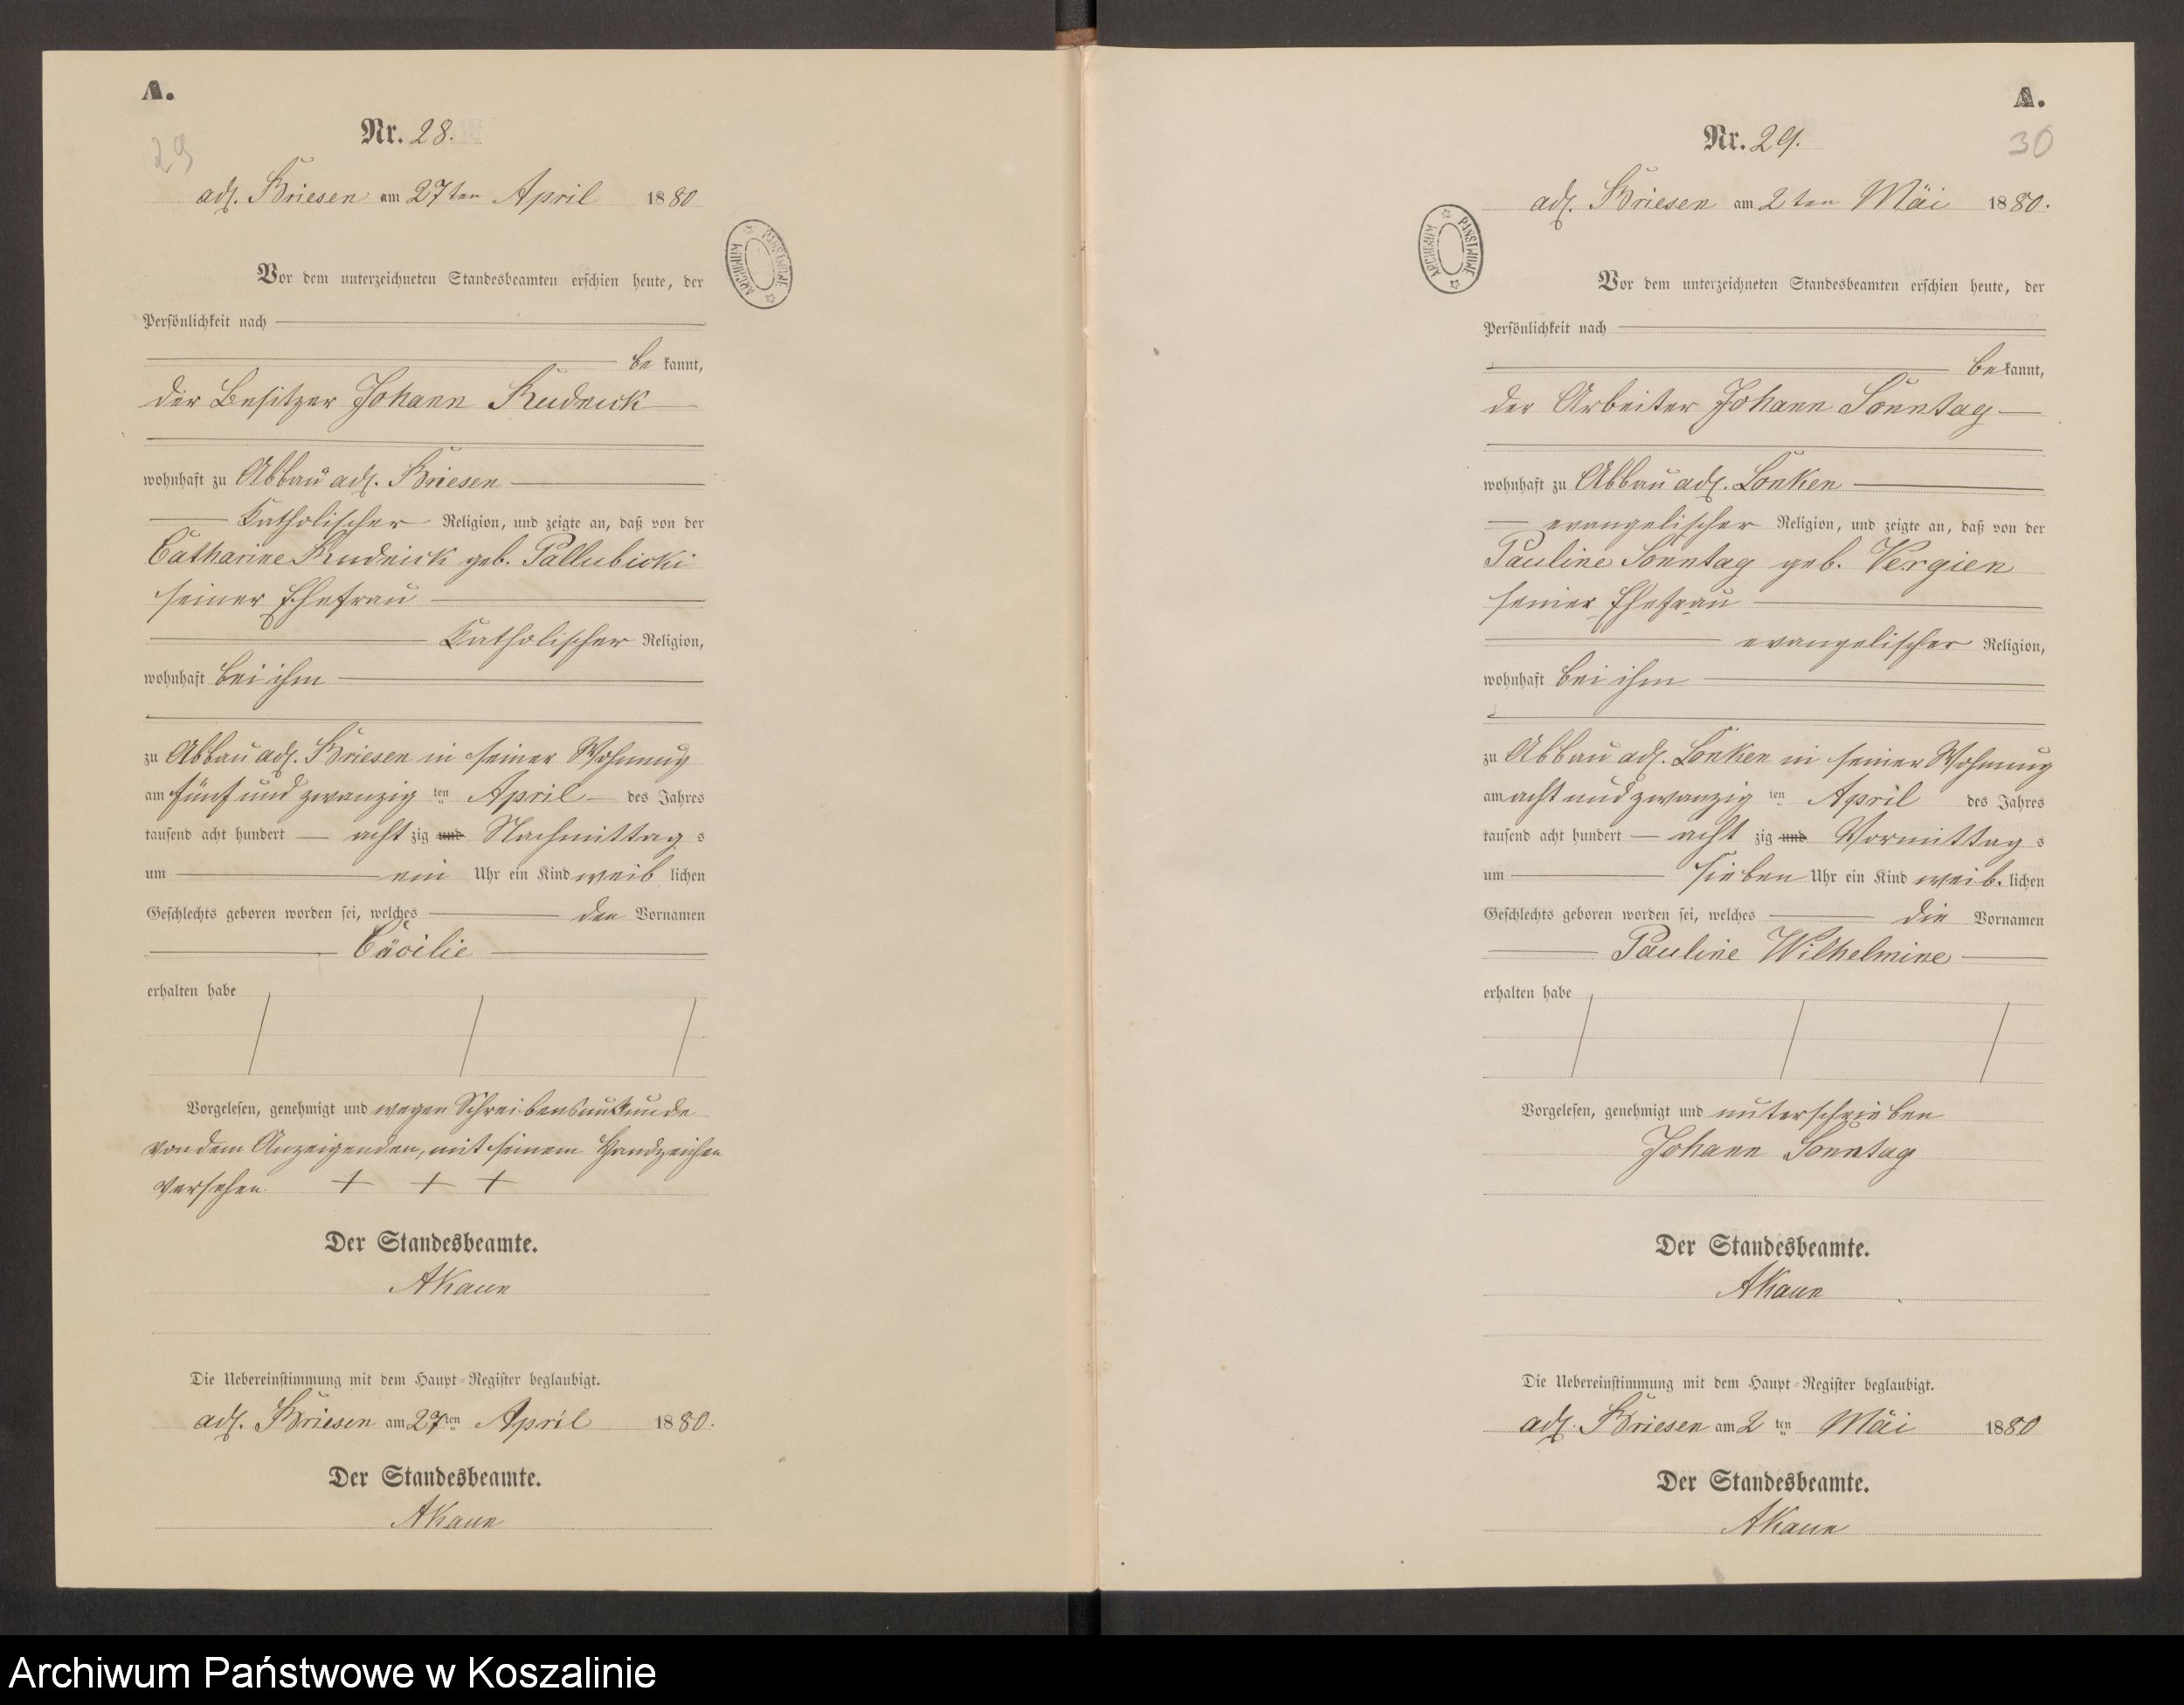 A.
29
Nr. 28.
adl. Briesen am 27ten April 1880
Vor dem unterzeichneten Standesbeamten erschien heute, der
Persönlichkeit nach
be kannt,
der Besitzer Johann Rudnick
wohnhaft zu Abbau adl. Briesen
Katholischer Religion, und zeigte an, daß von der
Catharine Rudnick geb. Pallubicki
seiner Ehefrau
Katholischer Religion,
wohnhaft bei ihm
zu Abbau adl. Briesen in seiner Wohnung
am fünf und zwanzig ten April des Jahres
tausend acht hundert acht zig und Nachmittag s
um ein Uhr ein Kind weib lichen
Geschlechts geboren worden sei, welches den Vornamen
Cäcilie
erhalten habe
Vorgelesen, genehmigt und wegen Schreibensunkunde
von dem Anzeigenden, mit seinem Handzeichen
versehen. + + +
Der Standesbeamte.
AKaun
Die Uebereinstimmung mit dem Haupt-Register beglaubigt.
adl. Briesen am 27ten April 1880.
Der Standesbeamte.
AKaun
ARCHIWUM PAŃSTWOWE
A.
30
Nr. 29.
adl. Briesen am 2ten Mai 1880.
ARCHIWUM PAŃSTWOWE
Vor dem unterzeichneten Standesbeamten erschien heute, der
Persönlichkeit nach
be kannt,
der Arbeiter Johann Sonntag
wohnhaft zu Abbau adl. Lonken
evangelischer Religion, und zeigte an, daß von der
Pauline Sonntag geb. Vergien
seiner Ehefrau
evangelischer Religion,
wohnhaft bei ihm
zu Abbau adl. Lonken in seiner Wohnung
am acht und zwanzig ten April des Jahres
tausend acht hundert acht zig und Vormittag s
um sieben Uhr ein Kind weib. lichen
Geschlechts geboren worden sei, welches die Vornamen
Pauline Wilhelmine
erhalten habe
Vorgelesen, genehmigt und unterschrieben
Johann Sonntag
Der Standesbeamte.
AKaun
Die Uebereinstimmung mit dem Haupt-Register beglaubigt.
adl. Briesen am 2 ten Mai 1880
Der Standesbeamte.
AKaun
Archiwum Państwowe w Koszalinie